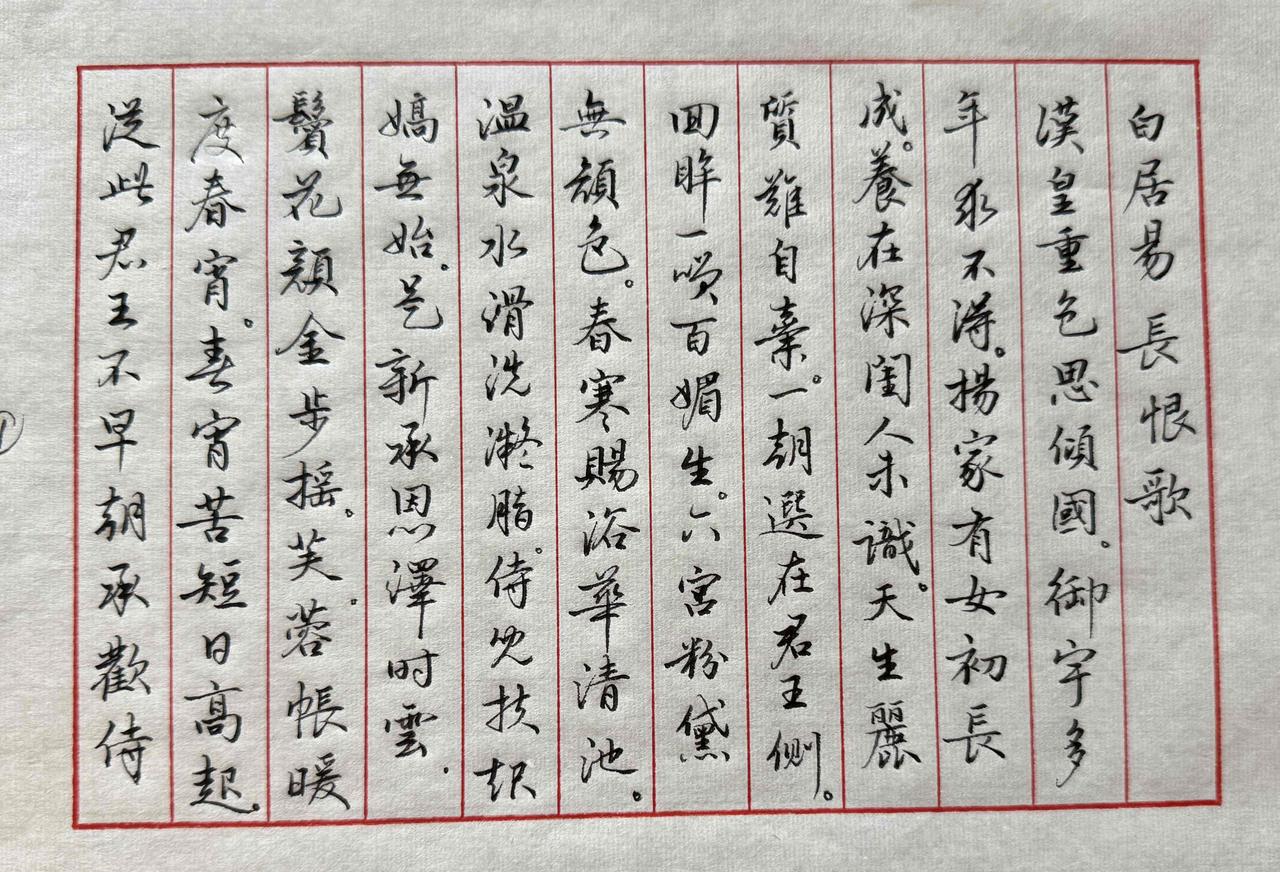 白居易 長恨歌
漢皇重色思傾國。御宇多
年求不得。揚家有女初長
成。養在深閨人未識。天生麗
質難自棄。一朝選在君王側。
回眸一咲百媚生。六宮粉黛
無顏色。春寒賜浴華清池。
温泉水滑洗凝脂。侍兒扶起
嬌無始。是新承恩澤时雲.
鬢花顏金步摇。芙.蓉帳暖
度春宵。春宵苦短日高起。
從此君王不早朝承歡侍